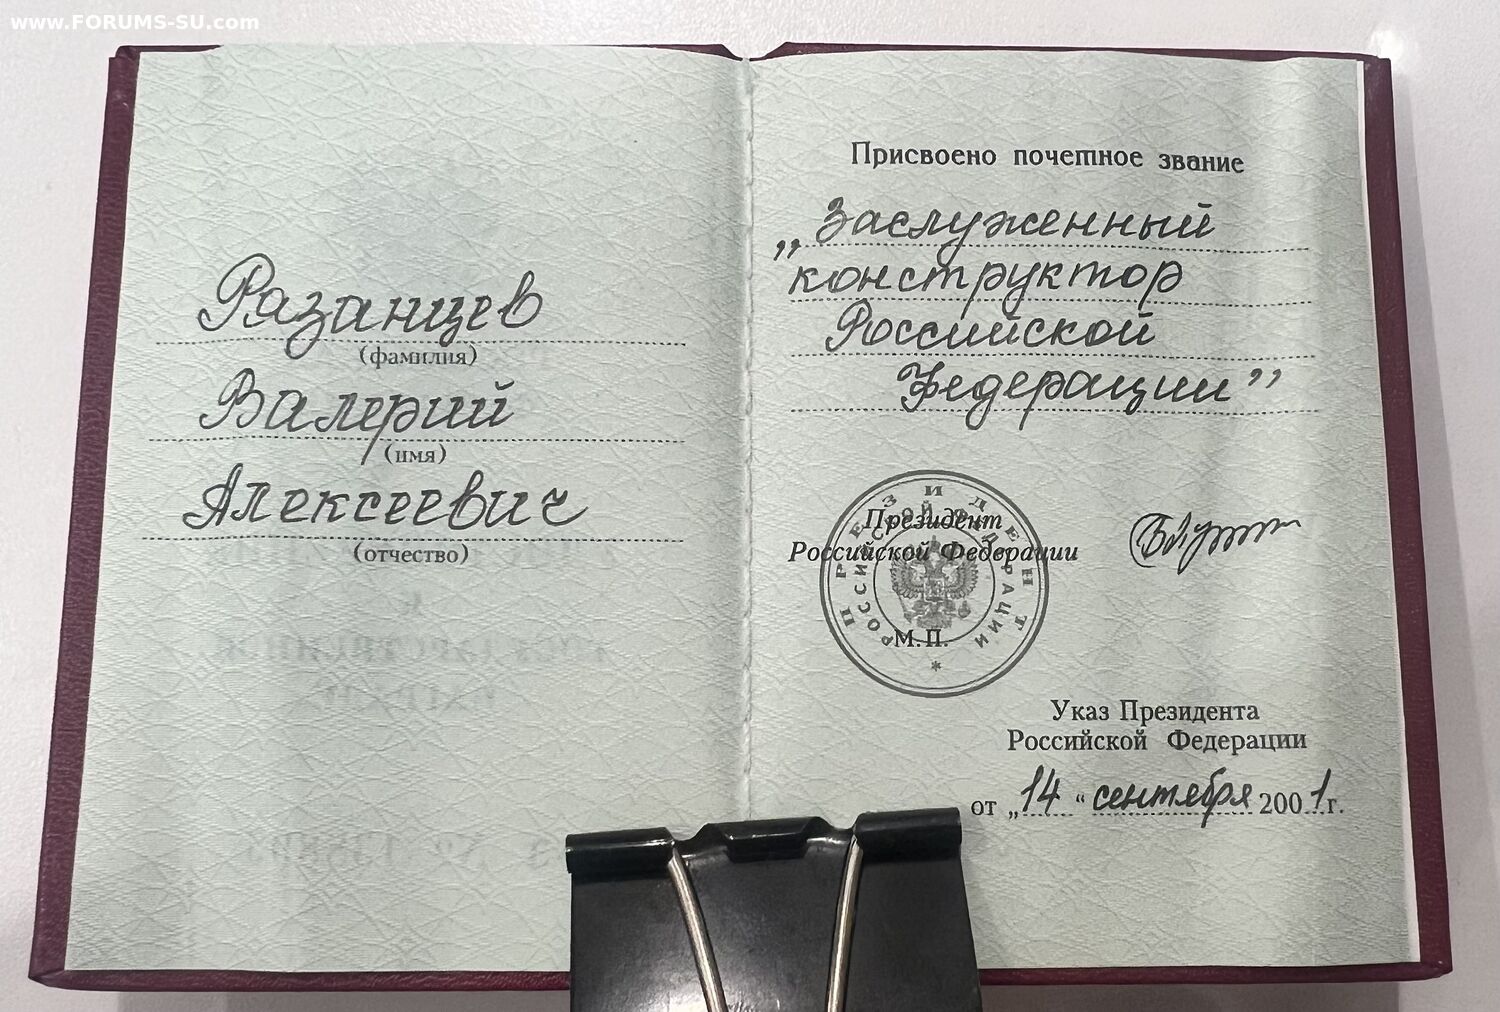 www.FORUMS-SU.com
Рязанцев
(фамилия)
Валерий
(имя)
Алексеевич
(отчество)
Присвоено почетное звание
„Заслуженный
конструктор
Российской
Федерации”
Президент
Российской Федерации
ПРЕЗИДЕНТ
РОССИЙСКОЙ ФЕДЕРАЦИИ
М.П.
Указ Президента
Российской Федерации
от „14“ сентября 2001г.